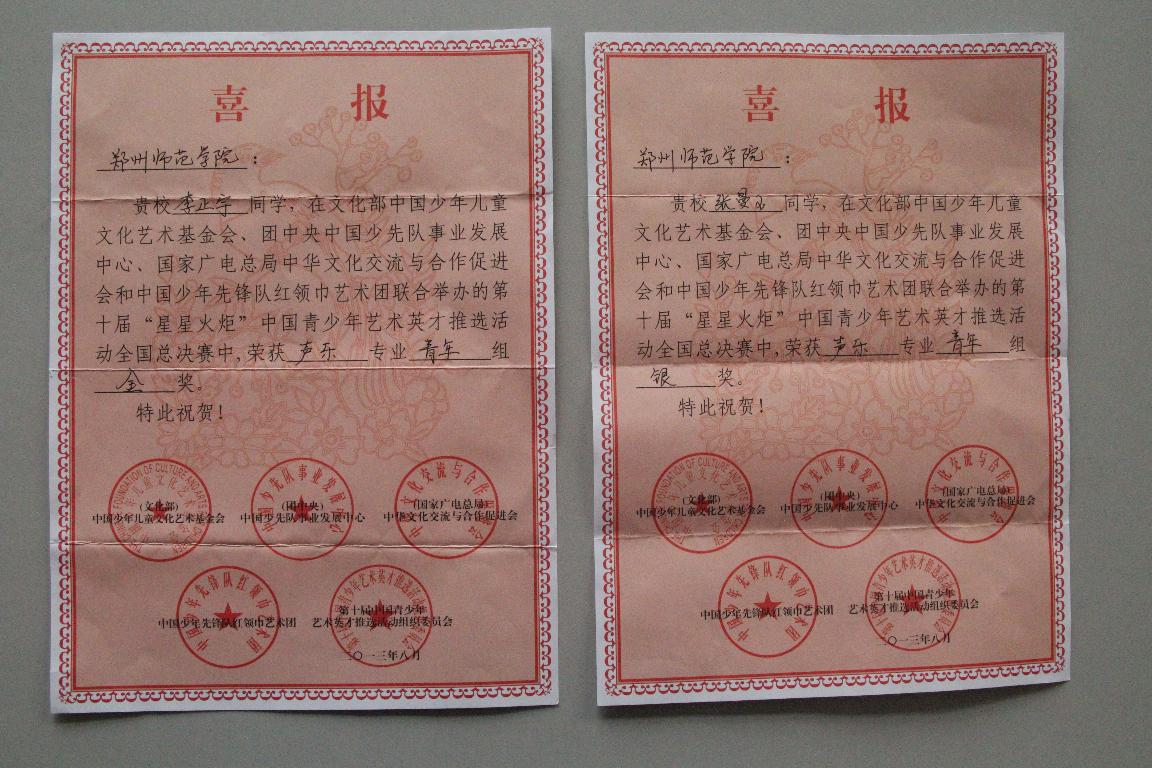 喜 报
郑州师范学院：
贵校李正宇同学，在文化部中国少年儿童
文化艺术基金会、团中央中国少先队事业发展
中心、国家广电总局中华文化交流与合作促进
会和中国少年先锋队红领巾艺术团联合举办的第
十届“星星火炬”中国青少年艺术英才推选活
动全国总决赛中,荣获声乐专业青年组
金奖。
特此祝贺！
(文化部)
中国少年儿童文化艺术基金会
(团中央)
中国少先队事业发展中心
(国家广电总局)
中华文化交流与合作促进会
中国少年先锋队红领巾艺术团
第十届中国青少年
艺术英才推选活动组织委员会
二〇一三年八月
喜 报
郑州师范学院：
贵校张曼玉同学，在文化部中国少年儿童
文化艺术基金会、团中央中国少先队事业发展
中心、国家广电总局中华文化交流与合作促进
会和中国少年先锋队红领巾艺术团联合举办的第
十届“星星火炬”中国青少年艺术英才推选活
动全国总决赛中,荣获声乐专业青年组
银奖。
特此祝贺！
(文化部)
中国少年儿童文化艺术基金会
(团中央)
中国少先队事业发展中心
(国家广电总局)
中华文化交流与合作促进会
中国少年先锋队红领巾艺术团
第十届中国青少年
艺术英才推选活动组织委员会
二〇一三年八月